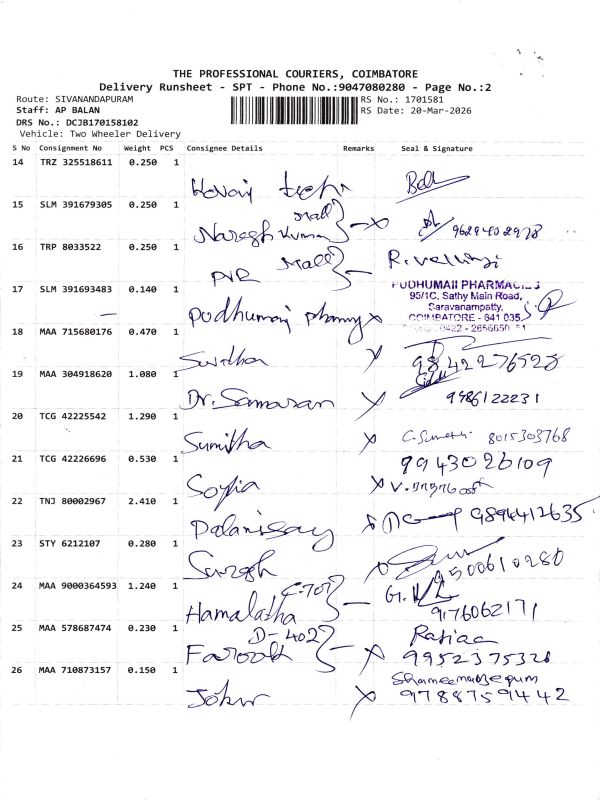 THE PROFESSIONAL COURIERS, COIMBATORE
Delivery Runsheet - SPT - Phone No.:9047080280 - Page No.:2
Route: SIVANANDAPURAM
Staff: AP BALAN
RS No.: 1701581
DRS No.: DCJB170158102
RS Date: 20-Mar-2026
Vehicle: Two Wheeler Delivery
S No Consignment No Weight PCS Consignee Details Remarks Seal & Signature
14 TRZ 325518611 0.250 1
15 SLM 391679305 0.250 1
Mall
Naresh Kumar 9629402978
16 TRP 8033522 0.250 1
PVR Mall
17 SLM 391693483 0.140 1
PUDHUMAII PHARMACIES
95/1C, Sathy Main Road,
Saravanampatty,
COIMBATORE - 641 035
Pudhumai
18 MAA 715680176 0.470 1
9842276528
19 MAA 304918620 1.080 1
Dr. Samarasan 9986122231
20 TCG 42225542 1.290 1
Sumitha 8015303768
21 TCG 42226696 0.530 1
9943026109
Sofia
22 TNJ 80002967 2.410 1
Palanisay 9894412635
23 STY 6212107 0.280 1
Suresh
9500610280
24 MAA 9000364593 1.240 1
C-707
Hamalatha 9176062171
25 MAA 578687474 0.230 1
D-402
Farook 9952375328
26 MAA 710873157 0.150 1
Shameemabegum
John 9788759442